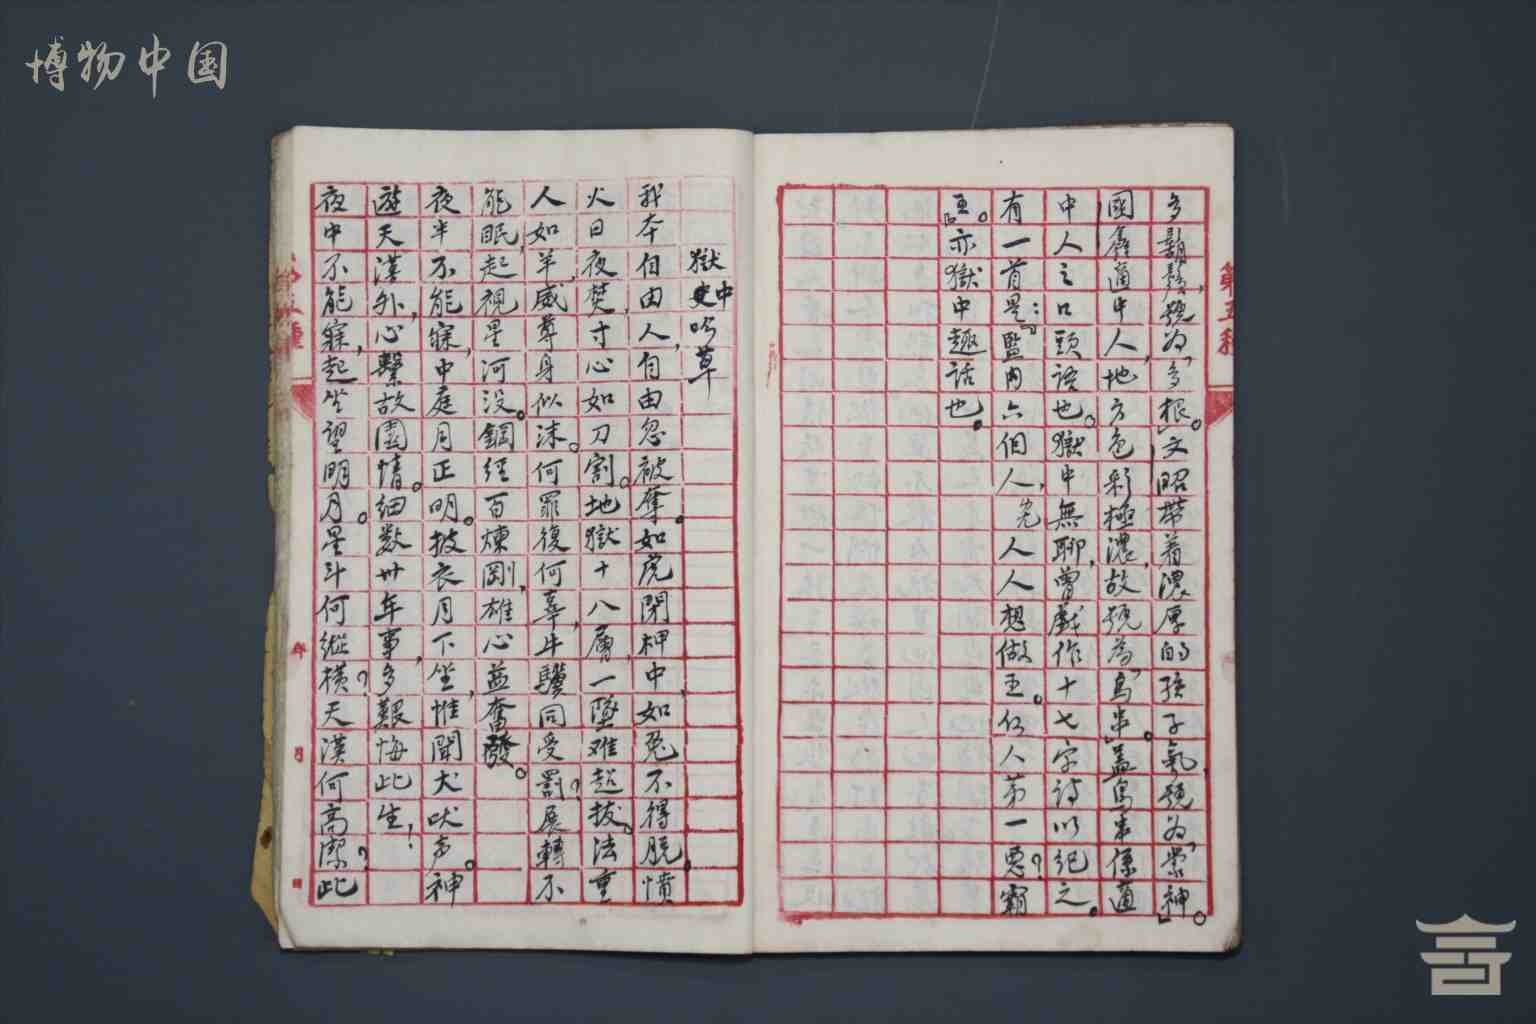 博物中国
第五種
多鬍鬚，號為「多根」。文昭帶着濃厚的孩子氣，號為「崇神」。
國鑫適中人，地方色彩極濃，故號為「烏串」。蓋烏串係適
中人之口頭語也。獄中無聊，曾戲作十七字詩以紀之。
有一首是：『監內六個人，人人想做王。仫人第一惡？霸
王』。亦獄中趣話也。
獄中吟草
我本自由人，自由忽被奪。如虎閉柙中，如兔不得脫。憤
火日夜焚，寸心如刀割。地獄十八層，一墜难超拔。法重
人如羊，威尊身似沫。何罪復何辜，牛驥同受罰？展轉不
能眠，起視星河沒。鋼經百煉剛，雄心益奮發。
夜半不能寐，中庭月正明。披衣月下坐，惟聞犬吠声。神
遊天漢外，心繫故園情。細數卅年事，多艱悔此生！
夜中不能寐，起坐望明月。星斗何縱橫？天漢何高潔？此
第五種
年 月 日